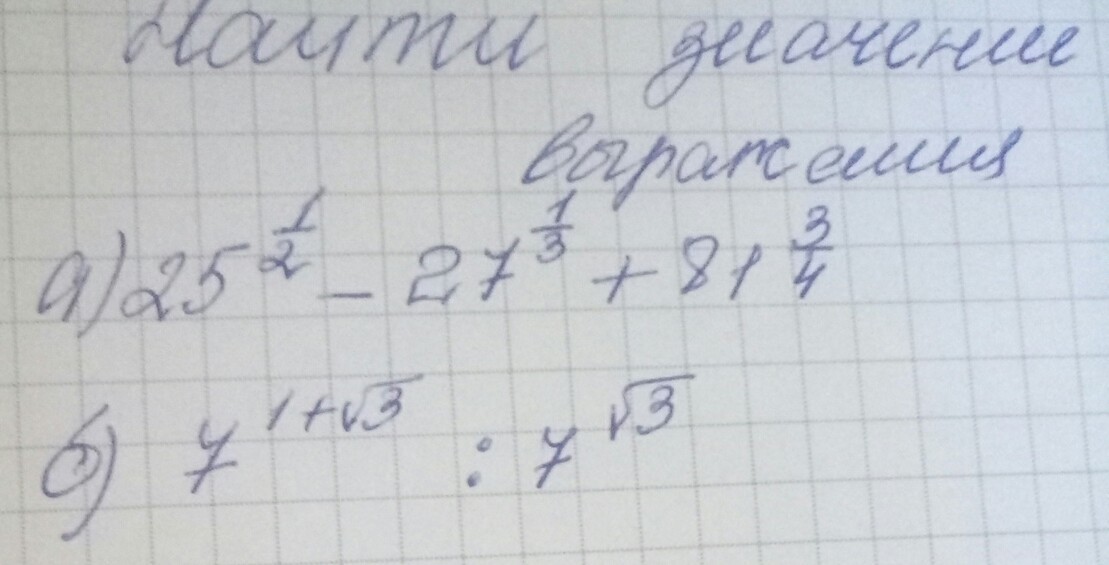 Найти значение
выражения
а) 25^{1/2} - 27^{1/3} + 81^{3/4}
б) 7^{1+√3} : 7^{√3}